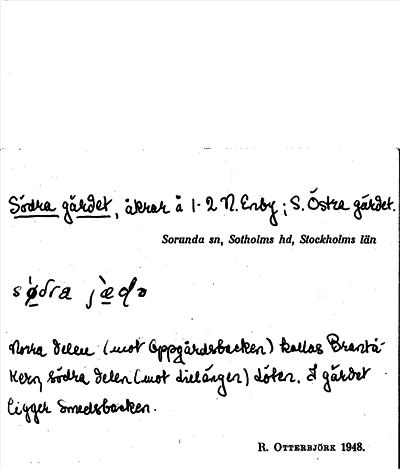 Södra gärdet, åkrar å 1-2 N. Enby; S. Östra gärdet.
Sorunda sn, Sotholms hd, Stockholms län
Norra delen (mot Oppgårdsbacken) kallas Brantå-
kern, södra delen (mot
gärdet
ligger Smedsbacken.
R. OTTERBJÖRK 1948.